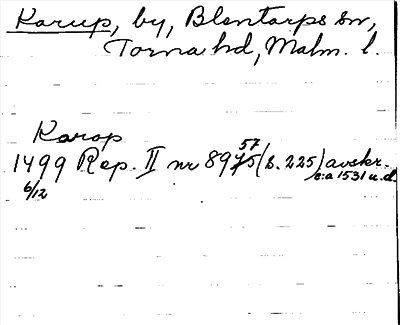 Karup, by, Blentarps sn,
Torna hd, Malm. l.
Karop
57
1499 Rep. II nr 8975 (s. 225) avskr.
6/12 c:a 1531 u.d.